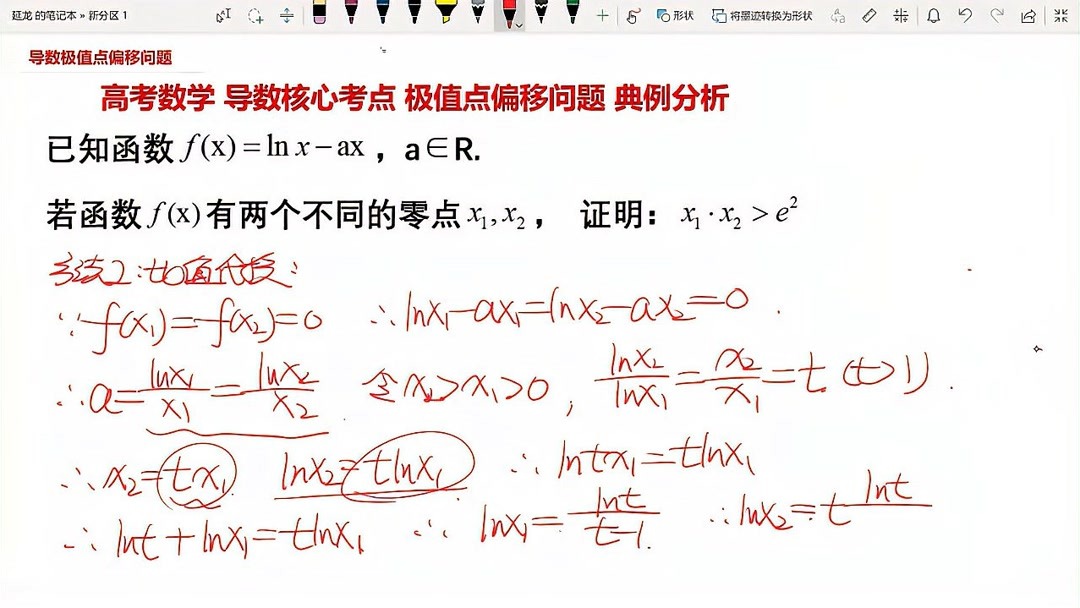 延龙 的笔记本 » 新分区 1
形状 将墨迹转换为形状
导数极值点偏移问题
高考数学 导数核心考点 极值点偏移问题 典例分析
已知函数 f(x)=ln x-ax，a∈R.
若函数 f(x)有两个不同的零点 x₁,x₂， 证明：x₁·x₂>e²
方法2:比值代换:
∵f(x₁)=f(x₂)=0 ∴lnx₁-ax₁=lnx₂-ax₂=0.
∴a=lnx₁/x₁=lnx₂/x₂ 令x₂>x₁>0, lnx₂/lnx₁=x₂/x₁=t(t>1).
∴x₂=tx₁ lnx₂=tlnx₁ ∴lntx₁=tlnx₁
∴lnt+lnx₁=tlnx₁ ∴lnx₁=lnt/t-1. ∴lnx₂=t lnt